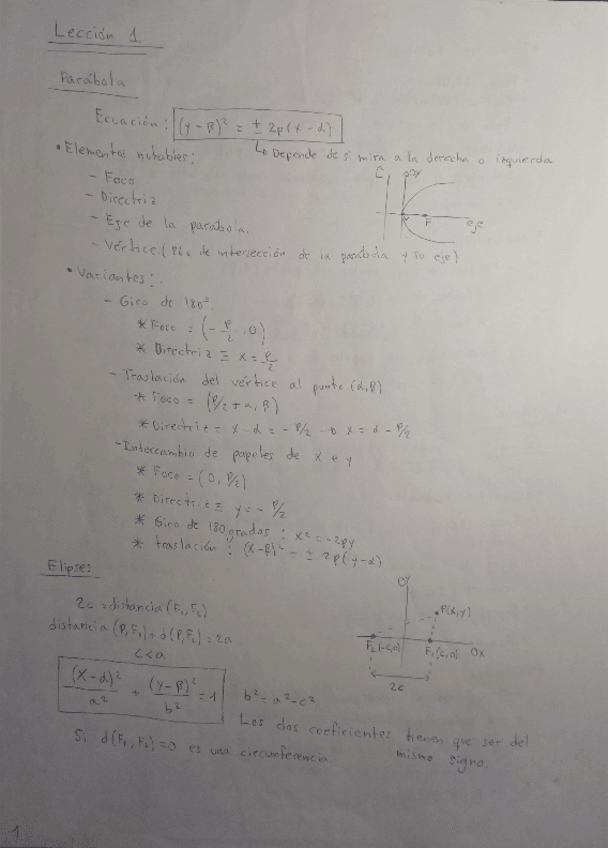 Lección 1
Parábola
Ecuación: (y-β)² = ± 2p(x-α)
↳ Depende de si mira a la derecha o izquierda
• Elementos notables:
- Foco
- Directriz
- Eje de la parábola.
- Vértice. ( de intersección de la parábola y su eje)
F eje
• Variantes:
- Giro de 180º.
* Foco = (-p/2, 0)
* Directriz ≡ x = p/2
- Traslación del vértice al punto (α,β)
* Foco = (p/2 + α, β)
* Directriz = x-α = -p/2 → x = α - p/2
- Intercambio de papeles de x e y
* Foco = (0, p/2)
* Directriz ≡ y = - p/2
* Giro de 180 grados : x² = -2py
* traslación : (x-β)² = ± 2p(y-α)
Elipses
2c = distancia (F₁, F₂)
distancia (P, F₁) + d(P, F₂) = 2a
c<a
(x-α)²/a² + (y-β)²/b² = 1 b² = a² - c²
OY
P(x,y)
F₂(-c,0) F₁(c,0) OX
2c
Los dos coeficientes tienen que ser del
mismo signo.
Si d(F₁, F₂)=0 es una circunferencia.
1